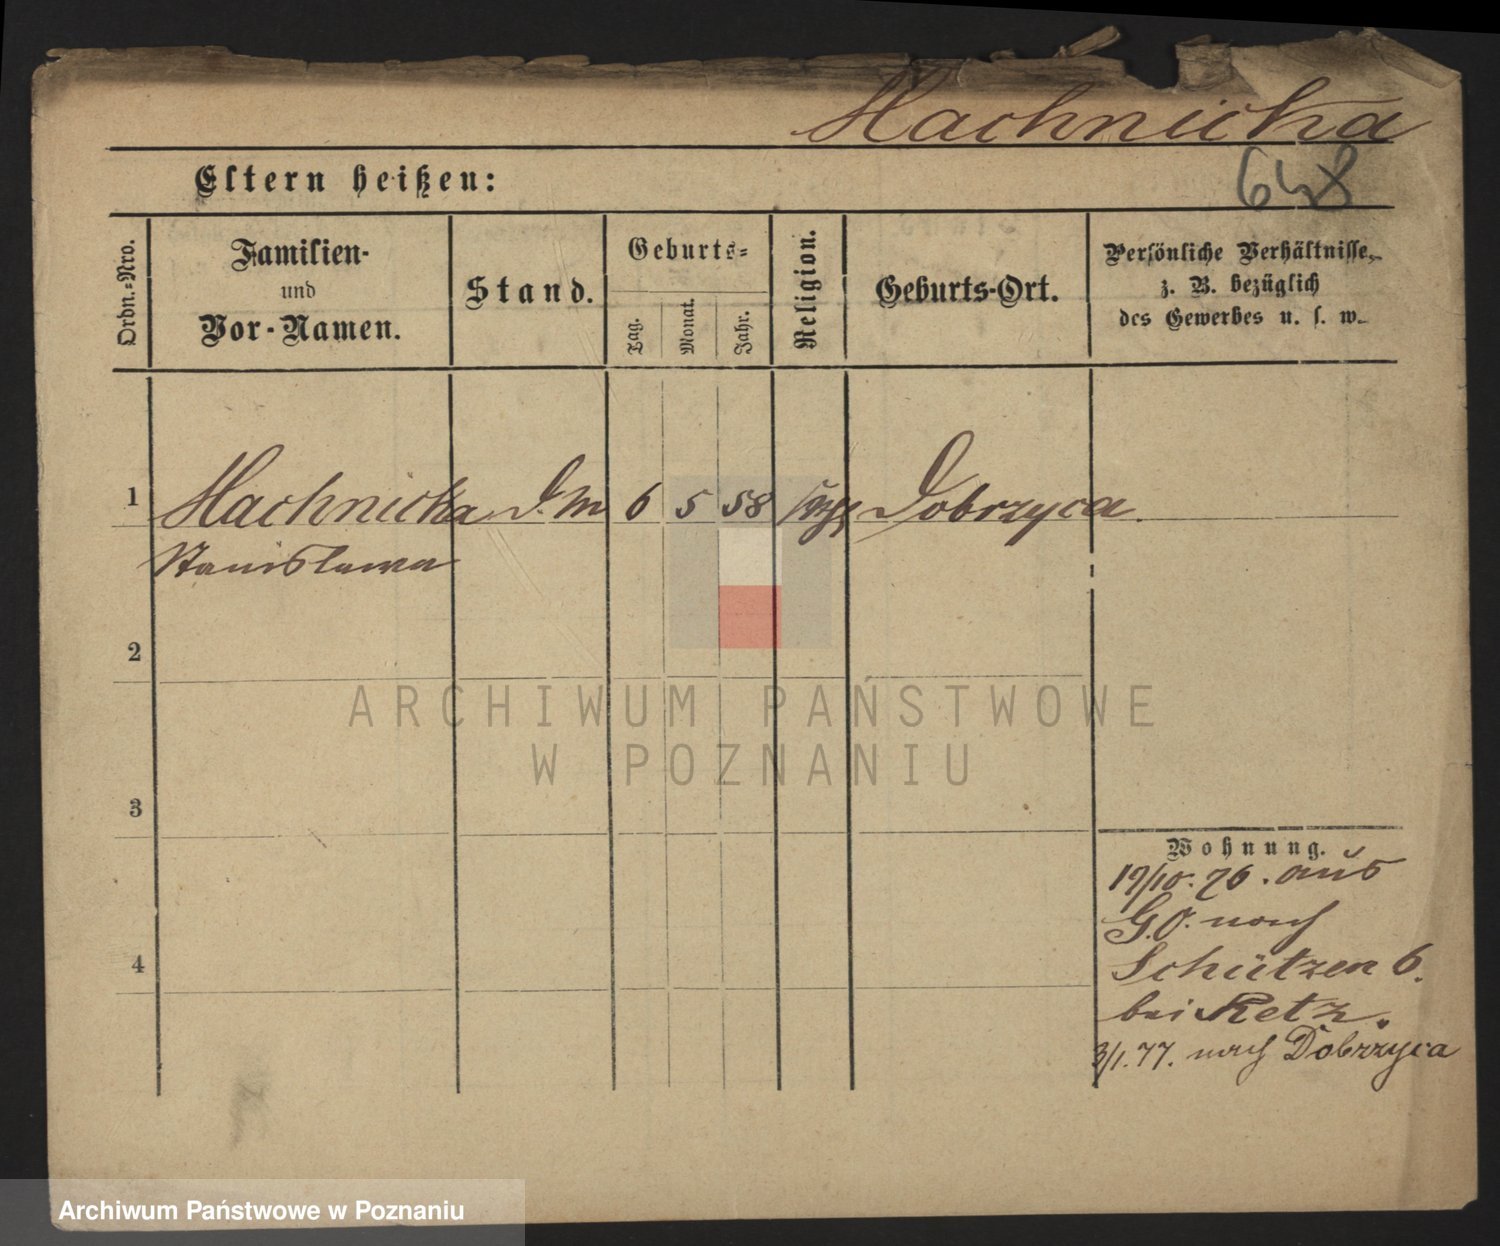 Machnicka
648
Eltern heißen:
Ordn.-Nro.
Familien-
und
Vor-Namen.
Stand.
Geburts-
Tag.
Monat.
Jahr.
Religion.
Geburts-Ort.
Persönliche Verhältnisse,
z. B. bezüglich
des Gewerbes u. s. w.
1
Machnicka D. M 6 5 58 Dobrzyca.
Stanislawa
2
ARCHIWUM PAŃSTWOWE
W POZNANIU
3
Wohnung.
19/10. 76. aus
G.O. nach
Schützen 6.
bei Retz.
3/1. 77. nach Dobrzyca
4
Archiwum Państwowe w Poznaniu